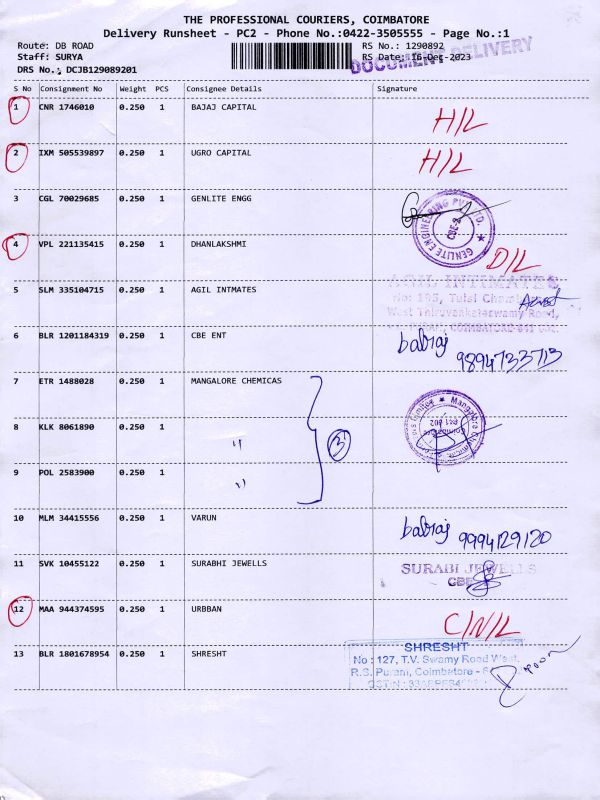 THE PROFESSIONAL COURIERS, COIMBATORE
Delivery Runsheet - PC2 - Phone No.:0422-3505555 - Page No.:1
Route: DB ROAD RS No.: 1290892
Staff: SURYA RS Date: 16-Dec-2023
DOCUMENT DELIVERY
DRS No.: DCJB129089201
S No Consignment No Weight PCS Consignee Details Signature
1 CNR 1746010 0.250 1 BAJAJ CAPITAL H/L
2 IXM 505539897 0.250 1 UGRO CAPITAL H/L
3 CGL 70029685 0.250 1 GENLITE ENGG
GENLITE ENGINEERING PVT. LTD. CBE-2
4 VPL 221135415 0.250 1 DHANLAKSHMI D/L
AGIL INTIMATES
5 SLM 335104715 0.250 1 AGIL INTMATES
No: 195, Tulsi
West Thiruvenkataswamy Road,
COIMBATORE-641 002.
6 BLR 1201184319 0.250 1 CBE ENT babraj 9894733713
7 ETR 1488028 0.250 1 MANGALORE CHEMICAS
8 KLK 8061890 0.250 1 " 3
Mangalore Chemicals Limited Coimbatore 641 002
9 POL 2583900 0.250 1 "
10 MLM 34415556 0.250 1 VARUN babraj 9994129120
11 SVK 10455122 0.250 1 SURABHI JEWELLS
SURABI JEWELLS
CBE
12 MAA 944374595 0.250 1 URBBAN C/N/L
13 BLR 1801678954 0.250 1 SHRESHT
SHRESHT
No : 127, T.V. Swamy Road West,
R.S. Puram, Coimbatore -